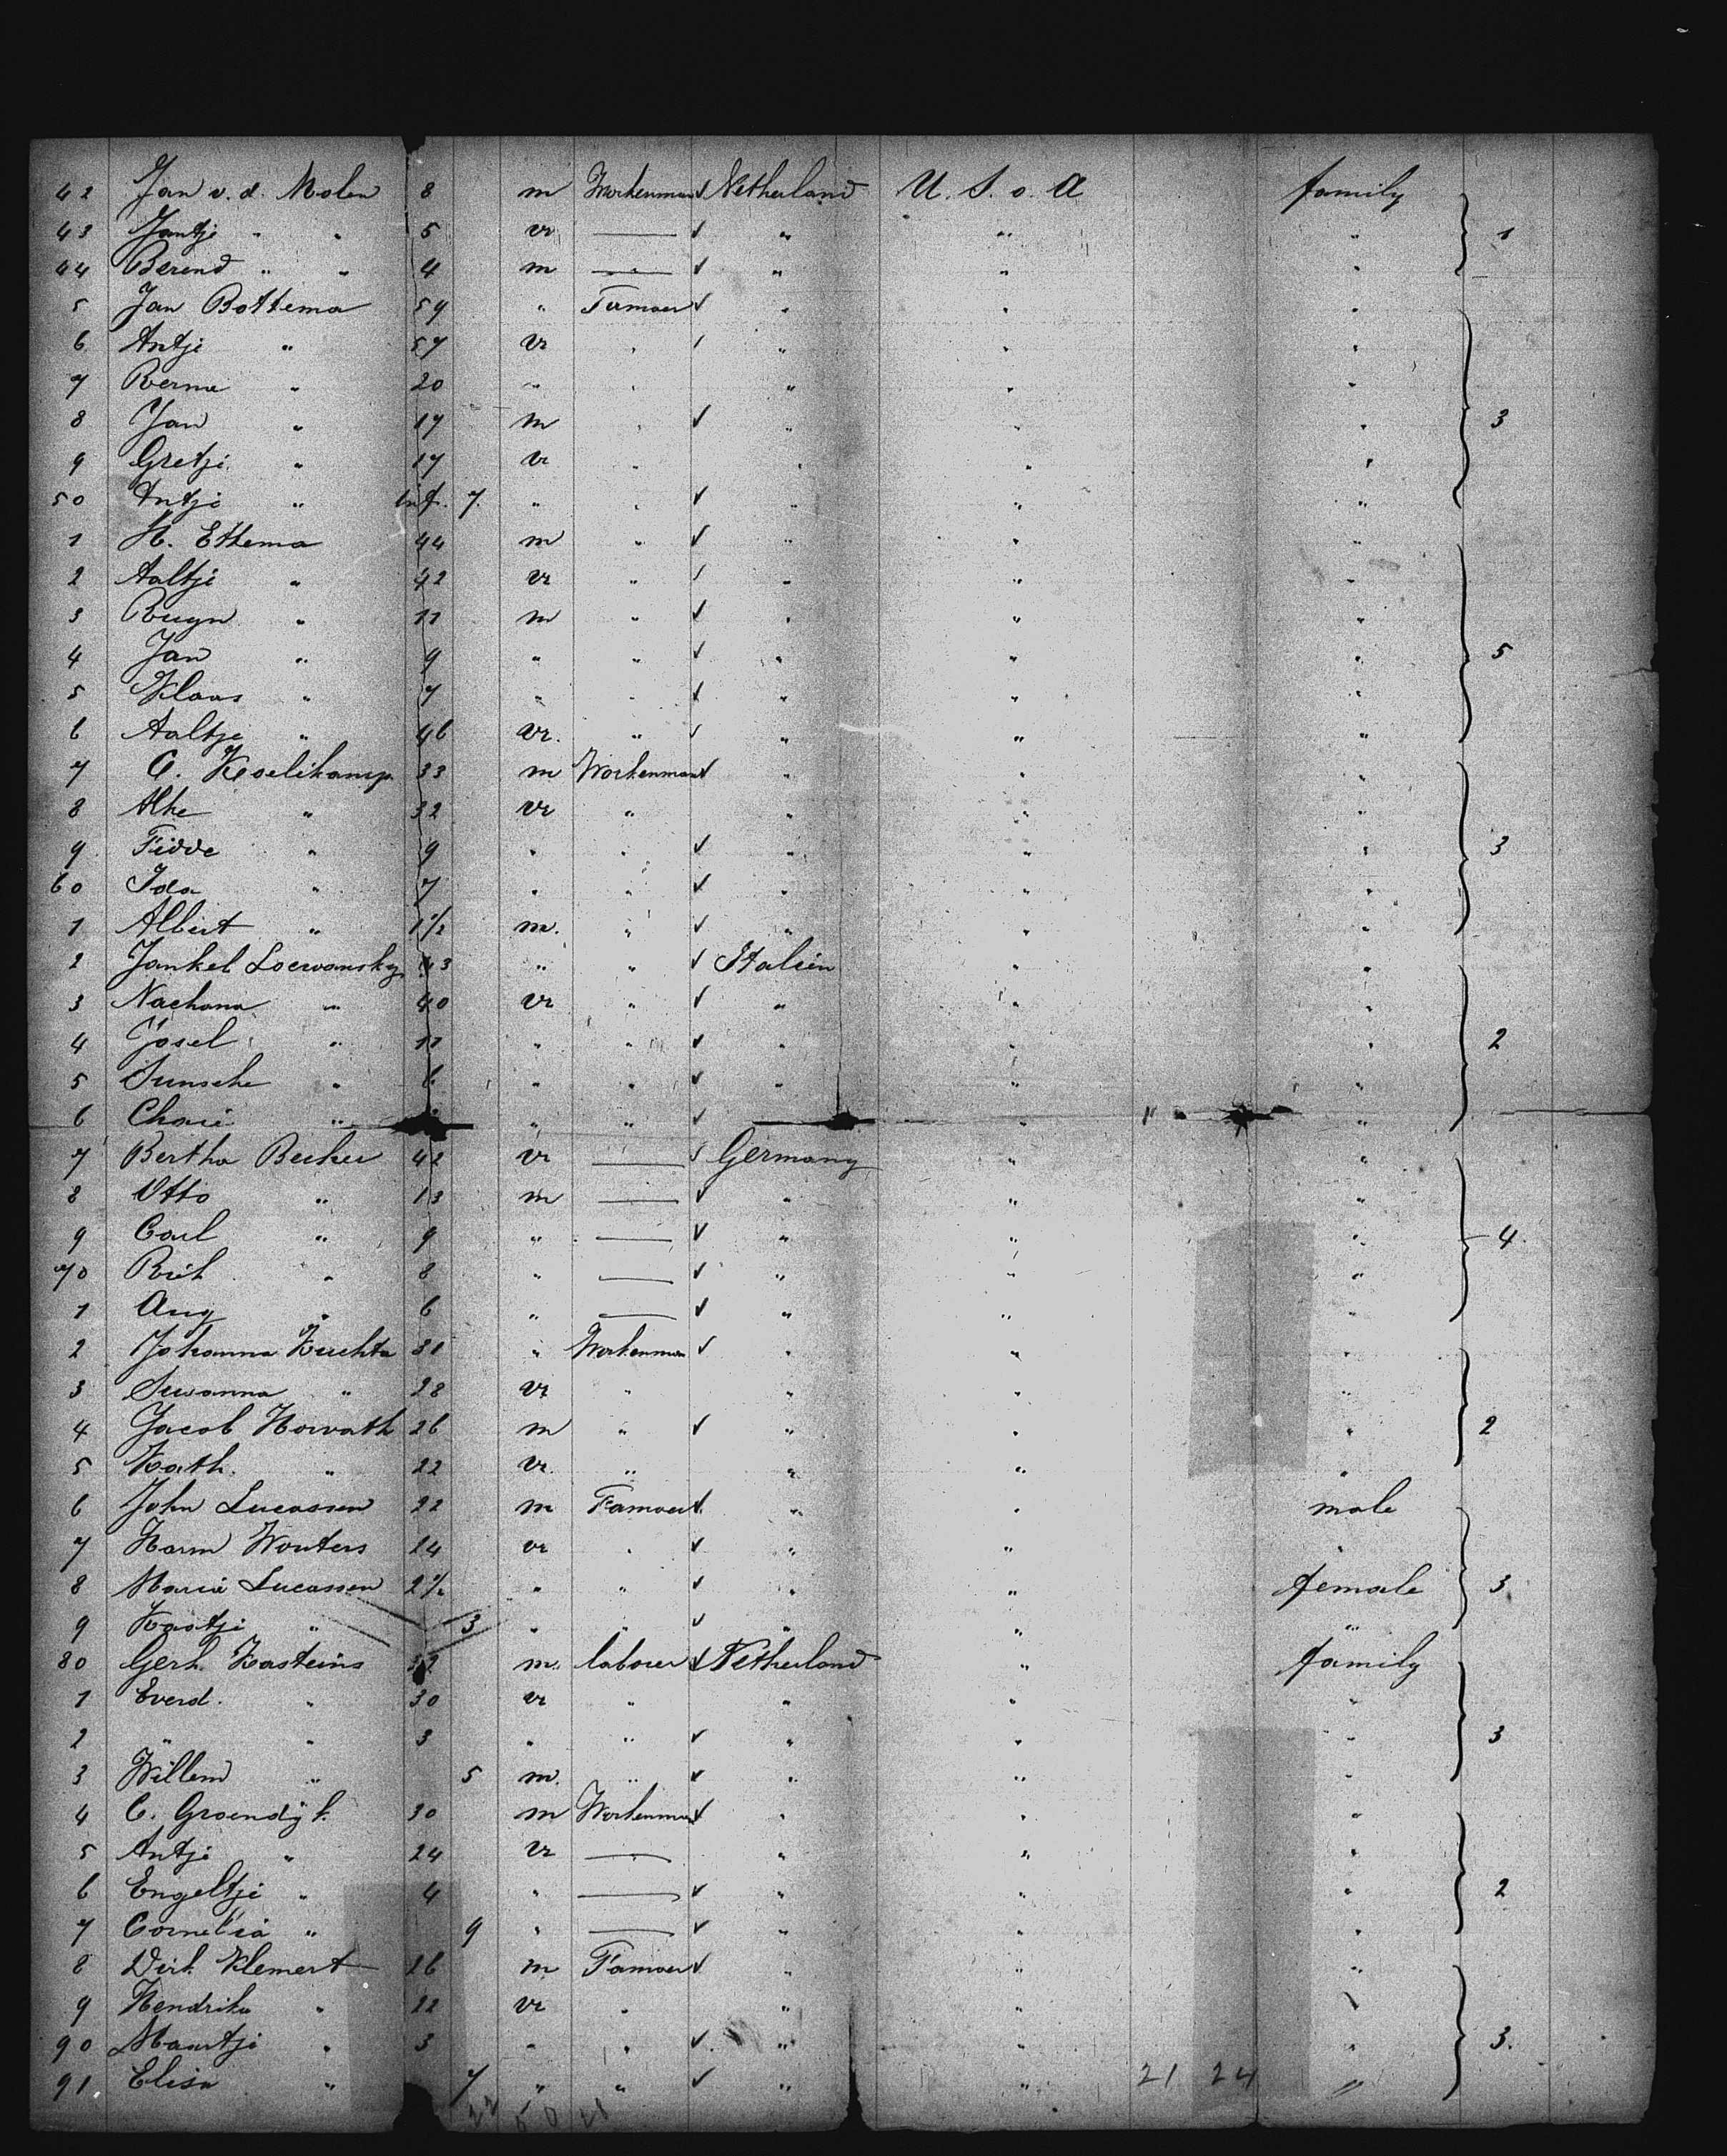 42 Jan v. d. Molen 8 m Workenman ✓ Netherland U. S. o. A family
43 Jantje " " 5 vr — ✓ " " " 1
44 Berend " " 4 m — ✓ " " "
5 Jan Bottema 59 " Farmoer ✓ " " "
6 Antje " 57 vr " ✓ " " "
7 " 20 " " " " "
8 Jan " 17 m " ✓ " " " 3
9 Gretje " 17 vr " " " "
50 Antje " inf. 7. " " ✓ " " "
1 H. Ettema 44 m " ✓ " " "
2 Aaltje " 42 vr " ✓ " " "
3 " 11 m " ✓ " " "
4 Jan " 9 " " ✓ " " " 5
5 Klaas " 7 " " ✓ " " "
6 Aaltje " 46 vr. " ✓ " " "
7 33 m Workenman ✓ " " "
8 " 32 vr " " " "
9 Fidde " 9 " " ✓ " " " 3
60 Ida " 7 " " ✓ " " "
1 Albert " 1 1/2 m. " ✓ " " "
2 Jankel Loewansky 43 " " ✓ Italien " "
3 Nachana " 40 vr " ✓ " " "
4 Josel " 11 " " ✓ " " " 2
5 " 6 " " ✓ " " "
6 " " " ✓ " "
7 Bertha Becker 42 vr — ✓ Germany " "
8 Otto " 13 m — ✓ " " "
9 Carl " 9 " — ✓ " " " 4
70 " 8 " — ✓ " " "
1 Aug " 6 " — ✓ " " "
2 Johanna Kuchta 31 " Workenman ✓ " " "
3 Suwanna " 28 vr " " " "
4 Jacob Horvath 26 m " ✓ " " " 2
5 Kath. " 22 vr. " " " "
6 John Lucassen 22 m Famoer ✓ " " male
7 Harm Wouters 24 vr " ✓ " " "
8 Maria Lucassen 2 1/2 " " ✓ " " female 3
9 Kaatje " 3 " " ✓ " " "
80 Gerh. Kasteins m. laborer ✓ Netherland " family
1 Everd. " 30 vr " " " "
2 " " 3 " " ✓ " " " 3
3 Willem " 5 m. " ✓ " " "
4 C. Groendijk 30 m Workenman ✓ " " "
5 Antje " 24 vr — " " "
6 Engeltje " 4 " — ✓ " " " 2
7 Cornelia " 9 " — ✓ " " "
8 Dirk Klemert 26 m Famoer ✓ " " "
9 Hendrika " 22 vr " " " "
90 Maartje " 3 " " ✓ " " " 3.
91 Elisa " 7 " " ✓ " " 21 24 "
22 50 21